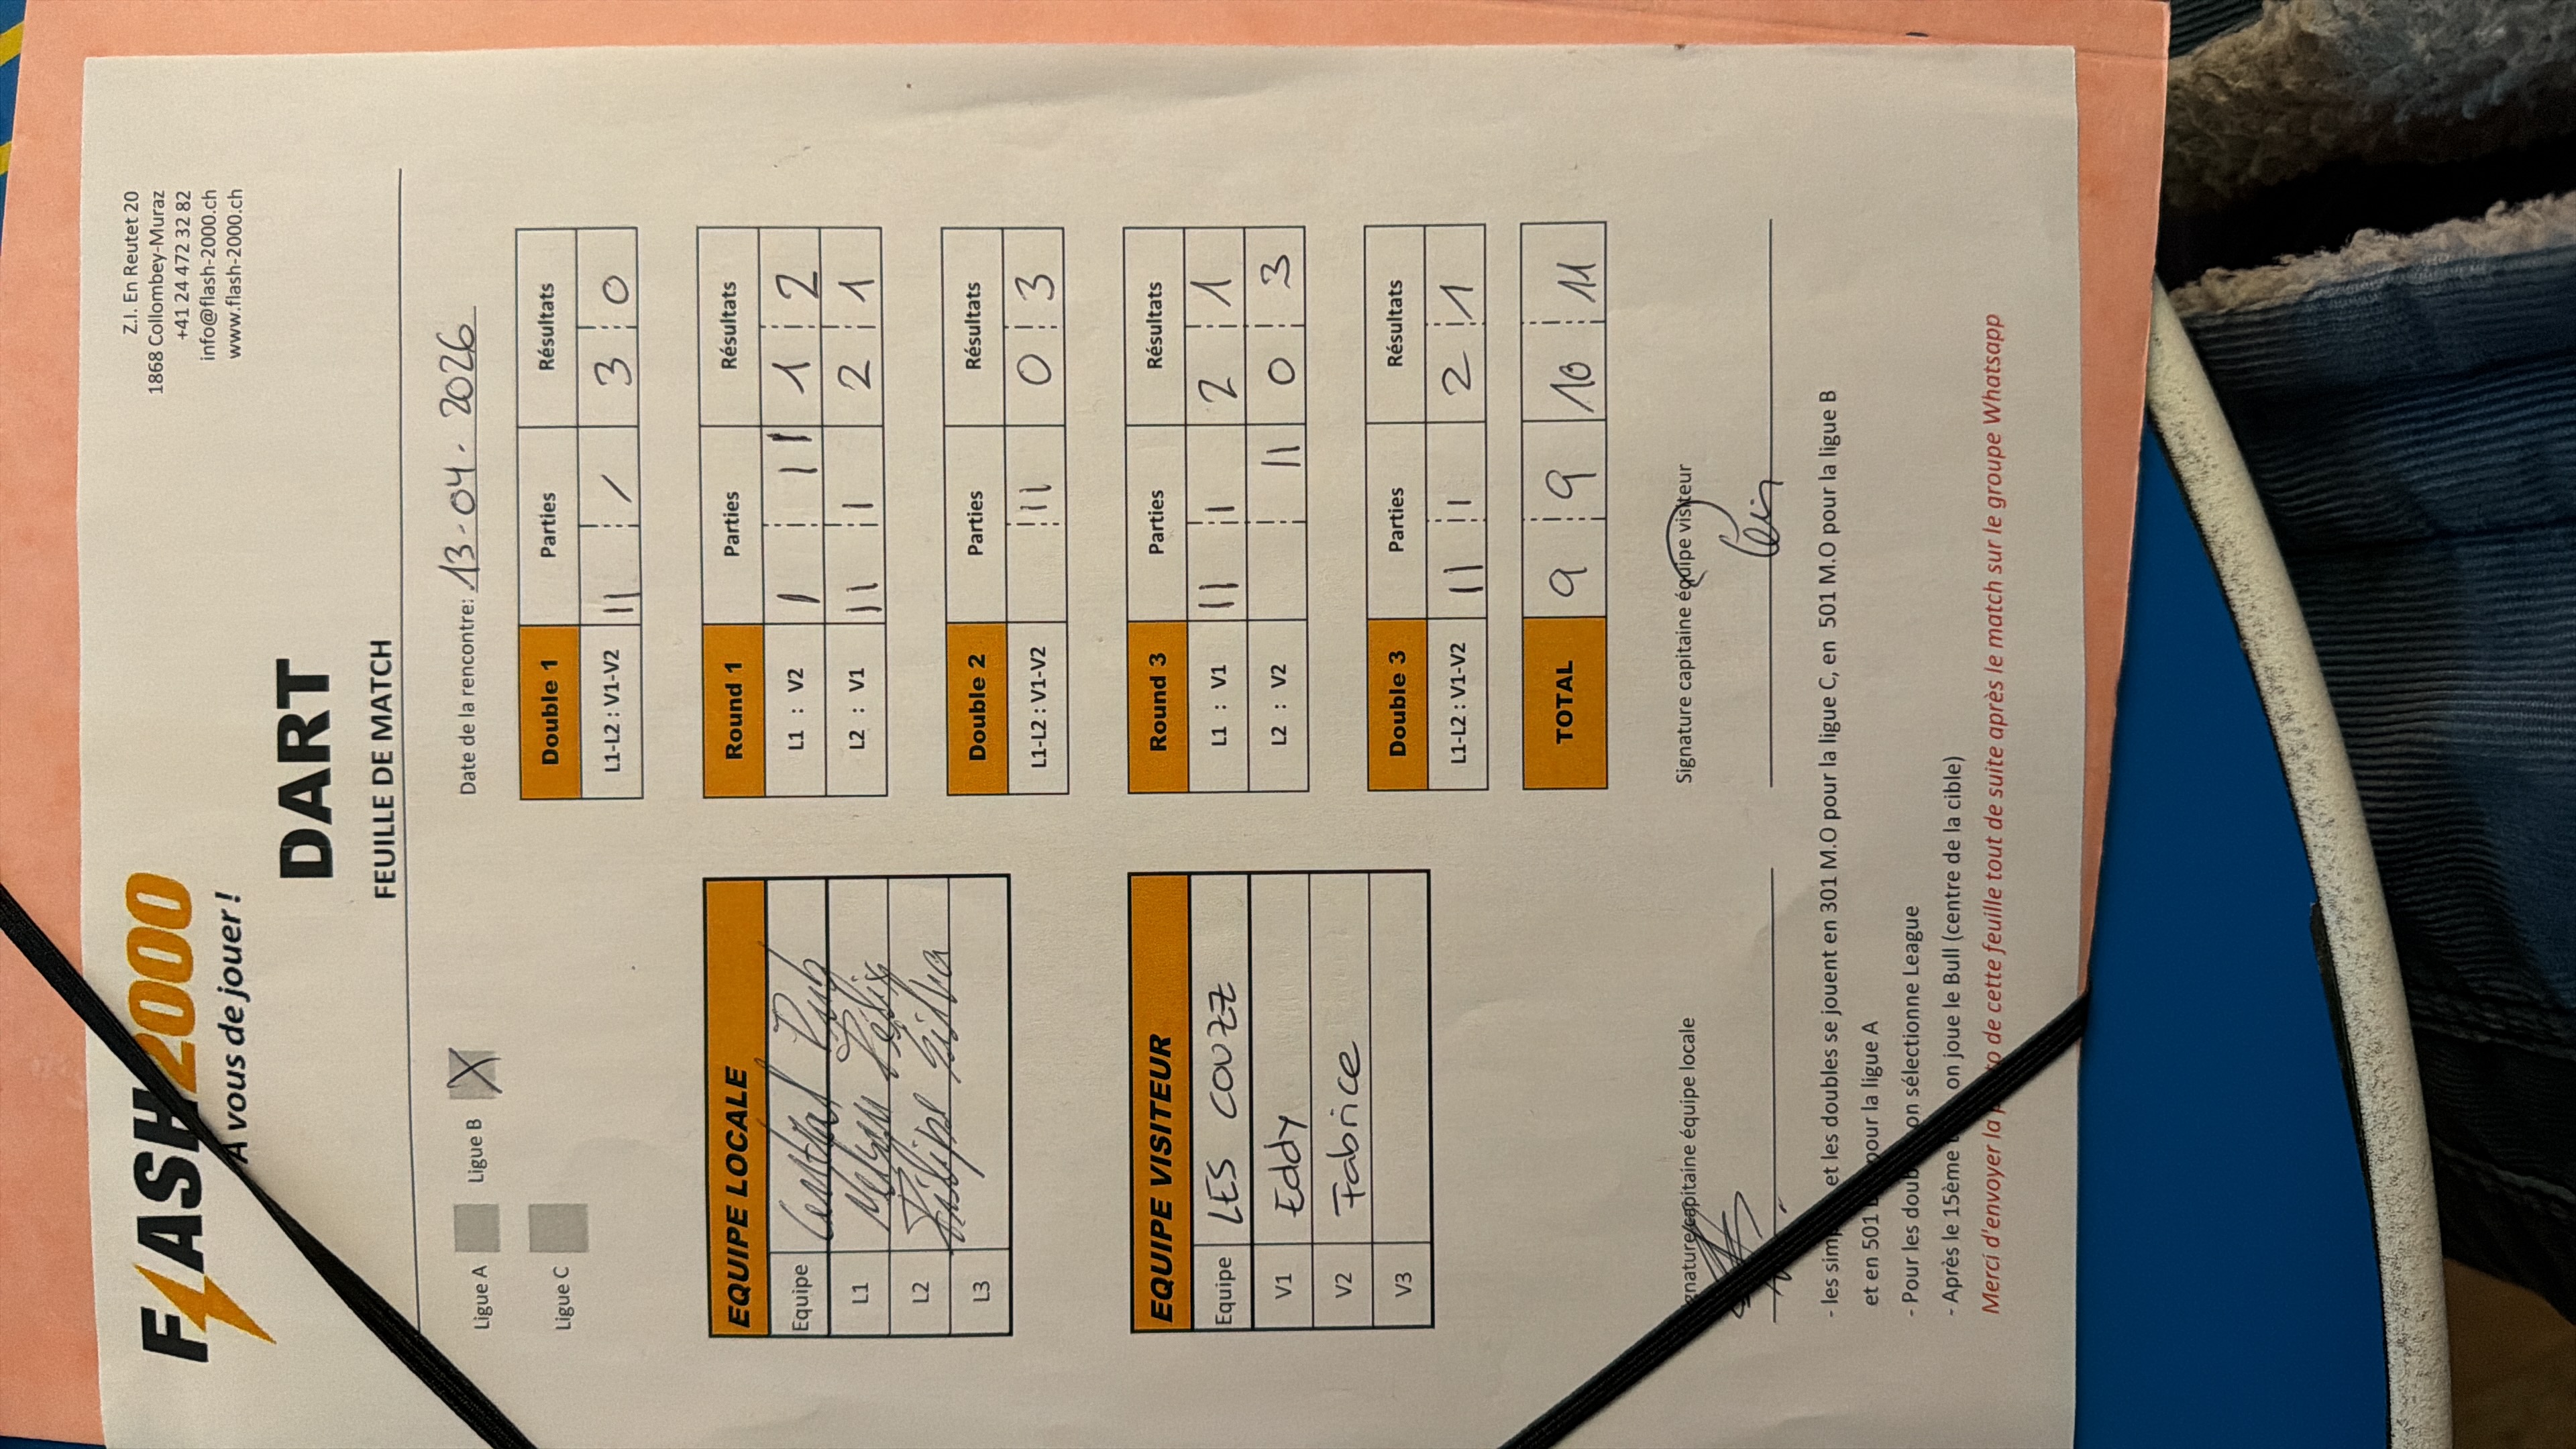 FLASH2000
A vous de jouer !
Z.I. En Reutet 20
1868 Collombey-Muraz
+41 24 472 32 82
info@flash-2000.ch
www.flash-2000.ch
DART
FEUILLE DE MATCH
Ligue A Ligue B X
Ligue C
Date de la rencontre: 13-04-2026
Double 1 Parties Résultats
L1-L2 : V1-V2 II I 3 0
EQUIPE LOCALE
Equipe Central Pub
L1
L2 Filipe Silva
L3
Round 1 Parties Résultats
L1 : V2 I II 1 2
L2 : V1 II I 2 1
Double 2 Parties Résultats
L1-L2 : V1-V2 II 0 3
EQUIPE VISITEUR
Equipe LES COUZZ
V1 Eddy
V2 Fabrice
V3
Round 3 Parties Résultats
L1 : V1 II I 2 1
L2 : V2 II 0 3
Double 3 Parties Résultats
L1-L2 : V1-V2 II I 2 1
TOTAL 9 9 10 11
capitaine équipe locale
Signature capitaine équipe visiteur
- les et les doubles se jouent en 301 M.O pour la ligue C, en 501 M.O pour la ligue B
et en 501 pour la ligue A
- Pour les on sélectionne League
- Après le 15ème on joue le Bull (centre de la cible)
Merci d'envoyer la de cette feuille tout de suite après le match sur le groupe Whatsapp